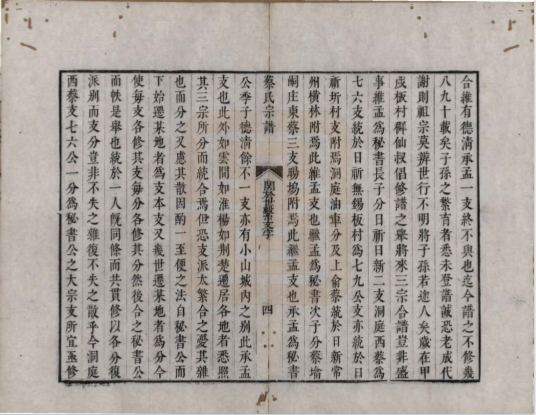 合雖有德清承孟一支終不與也迄今譜之不修幾
八九十載矣子孫之繁育者悉未登譜誠恐老成代
謝則祖宗莫辨世行不明將子孫若途人矣歲在甲
戌板村御仙叔倡修譜之舉將來三宗合譜豈非盛
事維孟爲秘書長子分日祈日新二支洞庭西蔡爲
七六支統於日祈無錫板村爲七九公支亦統於日
祈圻村支附焉洞庭油車分及上俞蔡統於日新常
州橫林附焉此維孟支也繼孟爲秘書次子分蔡墖
嗣庄東蔡三支暘塢附焉此繼孟支也承孟爲秘書
蔡氏宗譜
四
公季子德清餘不一支亦有小山城內之別此承孟
支也此外如雲間如淮楊如荆楚遷居各地者悉照
其三宗所分而統合焉但恐支派太繁合之憂其雜
也而分之又慮其散因酌一至便之法自秘書公而
下始遷某地者爲支本支又幾世遷某地者爲分今
使每支各修其支每分各修其分然後合之秘書公
而帙是舉也統於一人旣同條而共貫修以各分復
派別而支分豈非不失之雜復不失之散乎今洞庭
西蔡支七六公一分爲秘書公之大宗支所宜亟修